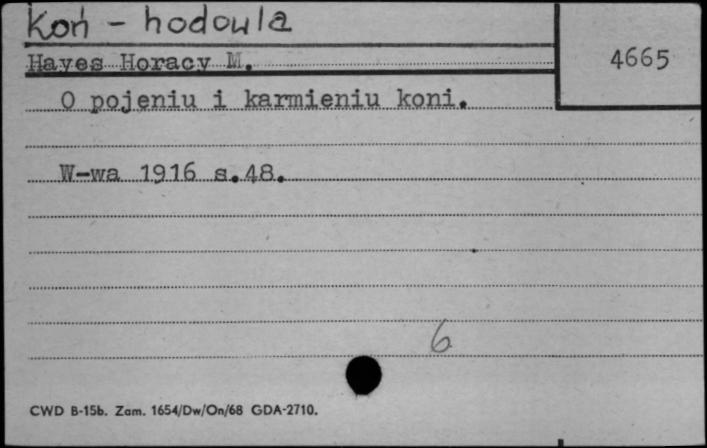 Koń - hodowla
Hayes Horacy M.
4665
O pojeniu i karmieniu koni.
W-wa 1916 s.48.
6
CWD B-15b. Zam. 1654/Dw/On/68 GDA-2710.